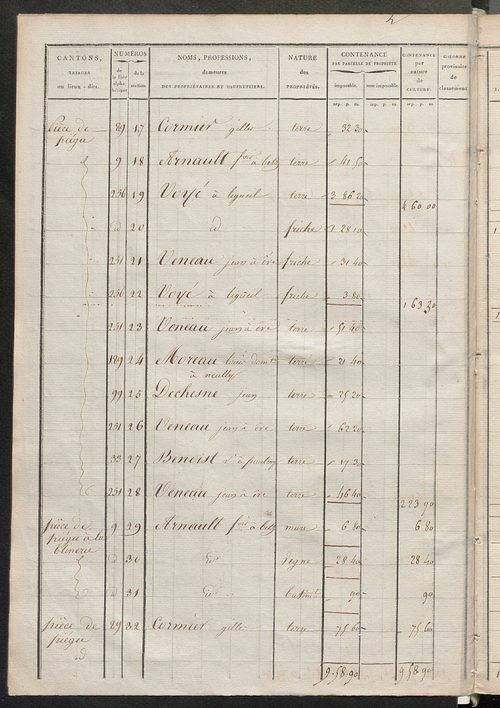 CANTONS,
TRIAGES
ou lieux-dits.
NUMÉROS
de la liste alphabétique
de la section.
NOMS, PROFESSIONS,
demeures
DES PROPRIÉTAIRES ET USUFRUITIERS.
NATURE
des
PROPRIÉTÉS.
CONTENANCE
PAR PARCELLE DE PROPRIÉTÉ
imposable.
non imposable.
CONTENANCE
par
nature
de
CULTURE.
COLONNE
provisoire
de
classement
arp. p. m. arp. p. m. arp. p. m.
pièce de 29 17 Cormier gilles terre 32 30
piégu
9 18 Arnault à terre 41 50
256 19 Voyé à ligueil terre 3 86 20
4 60 00
id 20 id friche 1 28 10
251 21 Veneau jean à friche 31 40
256 22 Voyé à ligueil friche 3 80
1 63 30
251 23 Veneau jean à terre 51 40
189 24 Moreau terre 21 40
à neuilly
99 25 Dechesne jean terre 25 20
251 26 Veneau jean à terre 62 20
33 27 Benoist à terre 17 30
251 28 Veneau jean à terre 46 40
2 23 90
pièce de 9 29 Arnault à 6 80 6 80
piégu à la
id 30 id vigne 28 40 28 40
id 31 id 90 90
pièce de 29 32 Cormier gilles terre 75 60 75 60
piégu
id
9 58 90 9 58 90